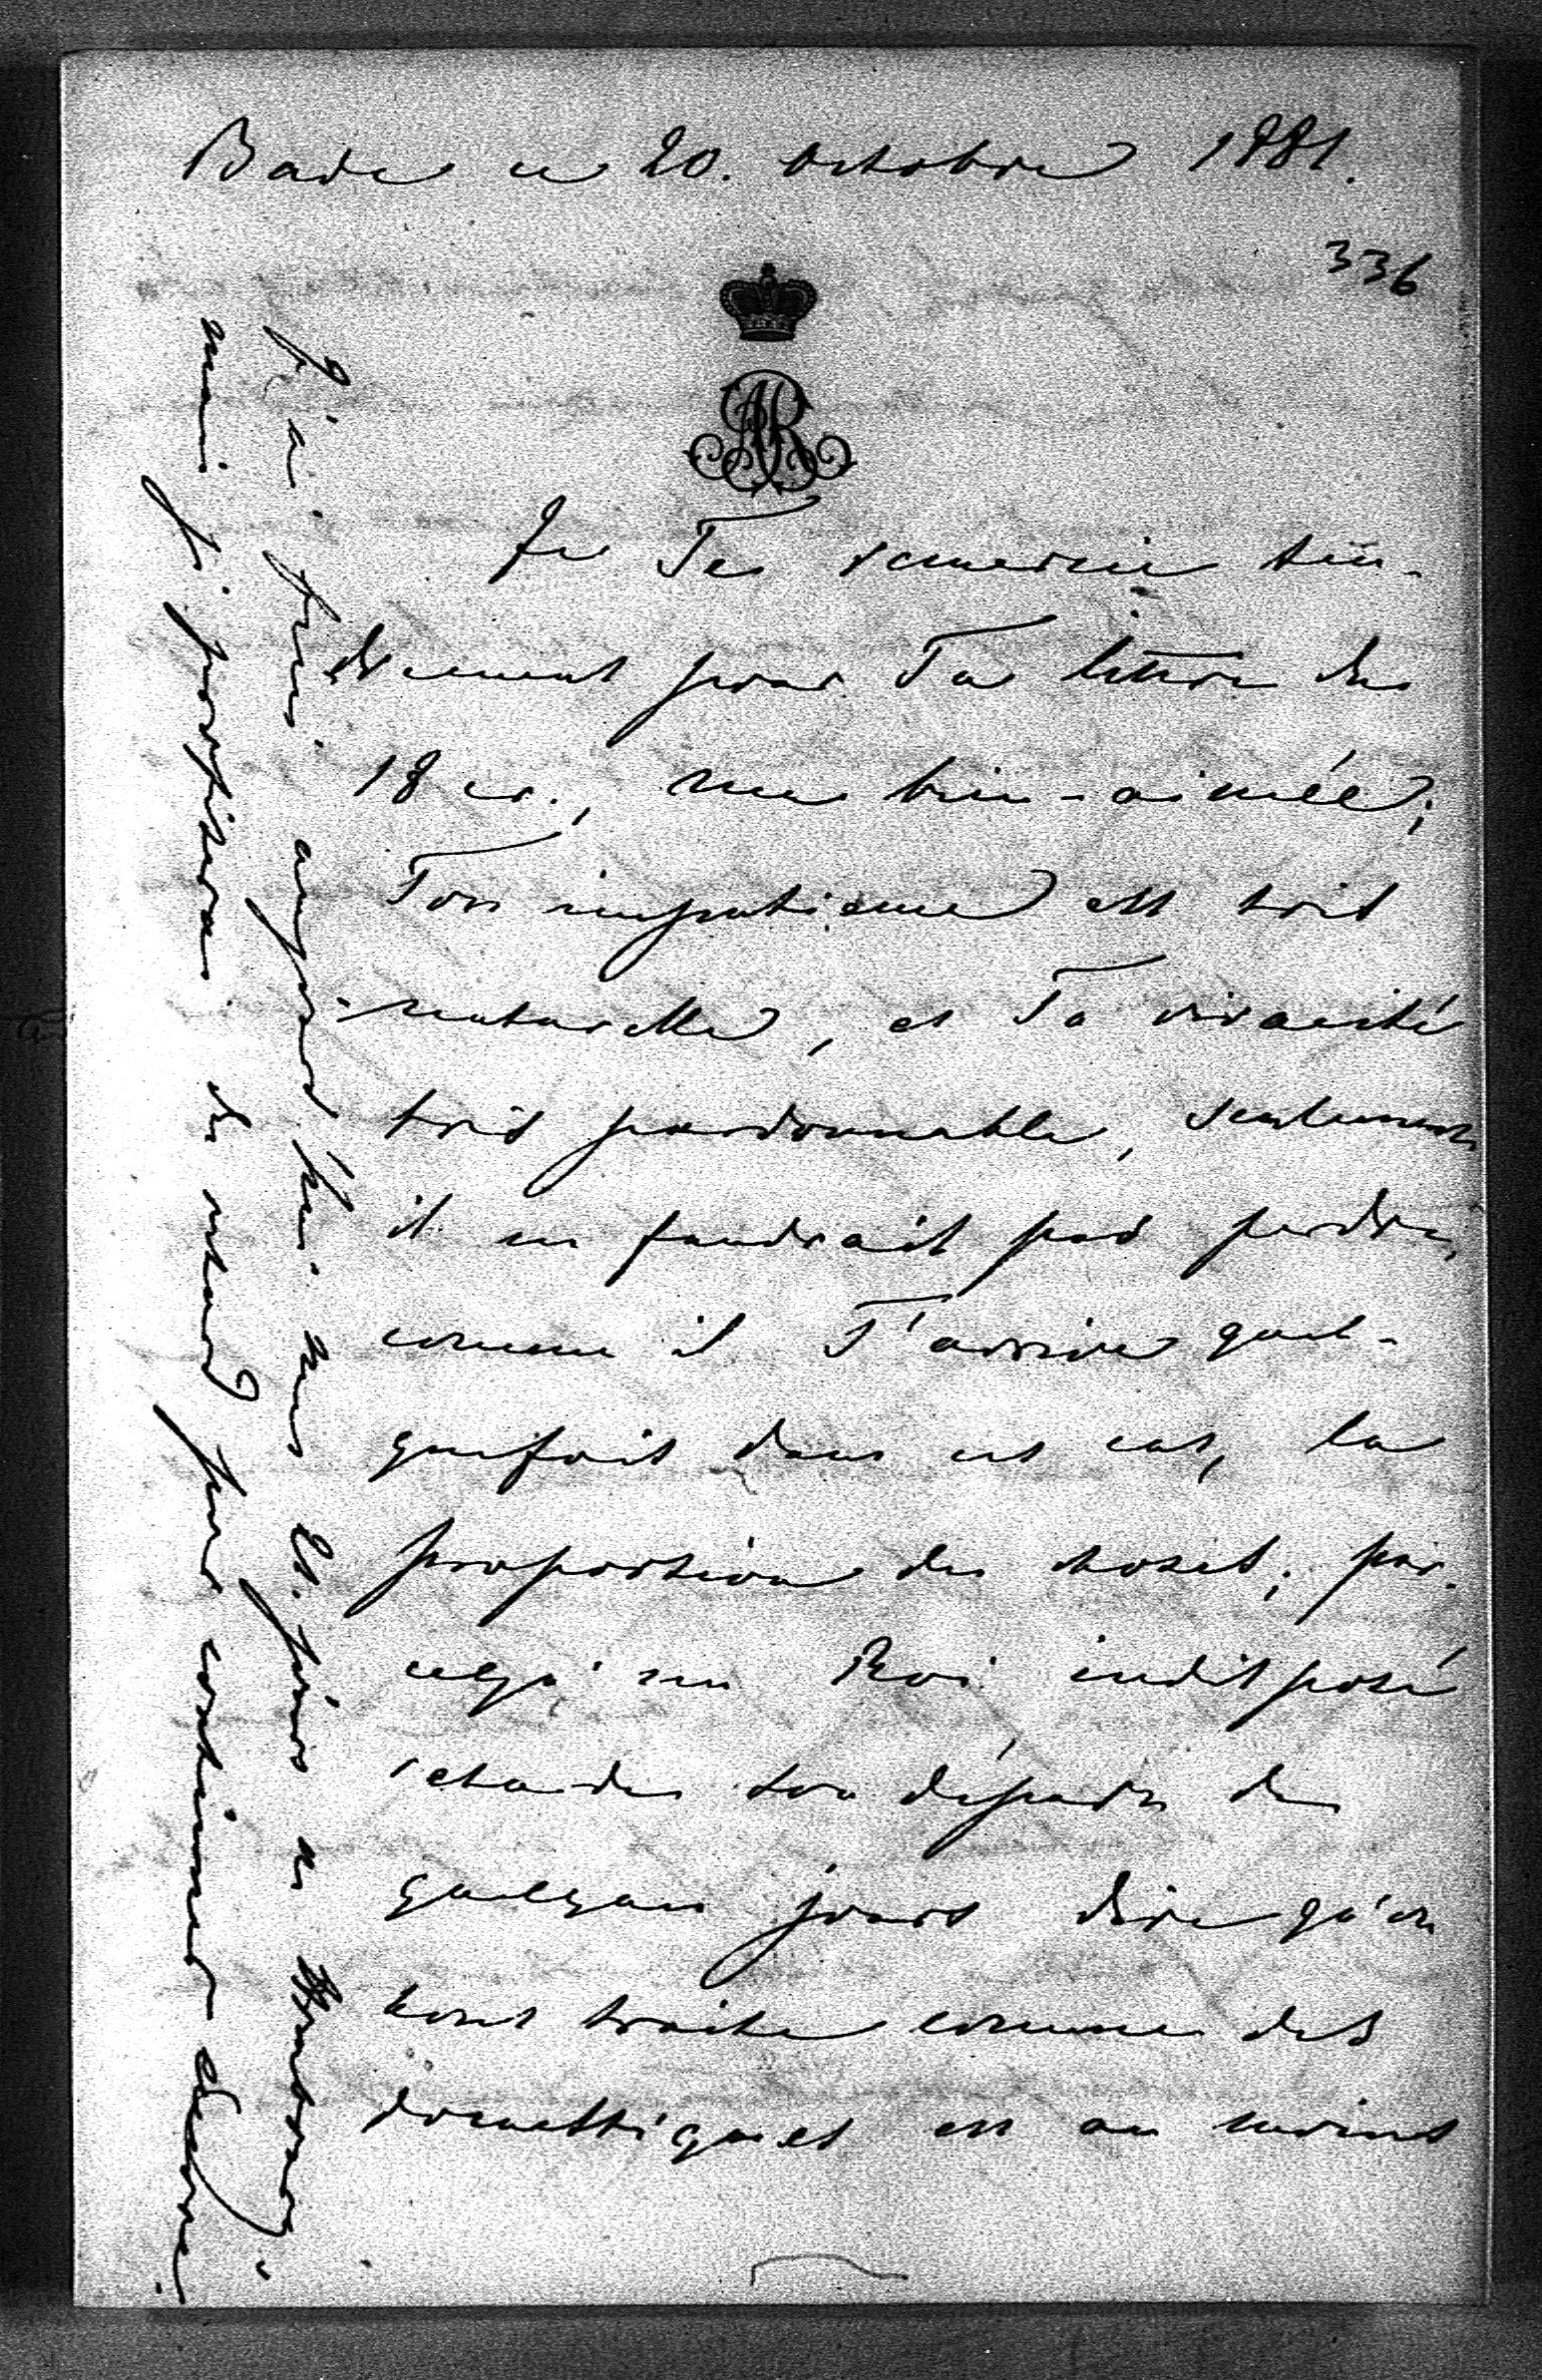 Bade ce 20. octobre 1881.
336
AR
Je Te remercie ten-
drement pour Ta lettre du
18 cr., ma bien-aimée;
Ton impatience est très
naturelle, et Ta vivacité
très pardonnable, seulement
il ne faudrait pas perdre,
comme il T'arrive quel-
quefois dans ces cas, la
proportion des choses; par-
cequ'un Roi indisposé
retarde son départ de
quelques jours dire qu'on
vous traite comme des
domestiques est au moins
J'ai fini aujourd'hui mes
mais je profiterai du retard pour continuer